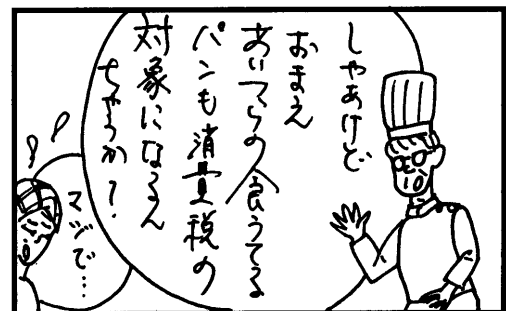 しゃあけど
おまえ
あいつらの食うてる
パンも消費税の
対象になるん
ちゃうか?
マジで…